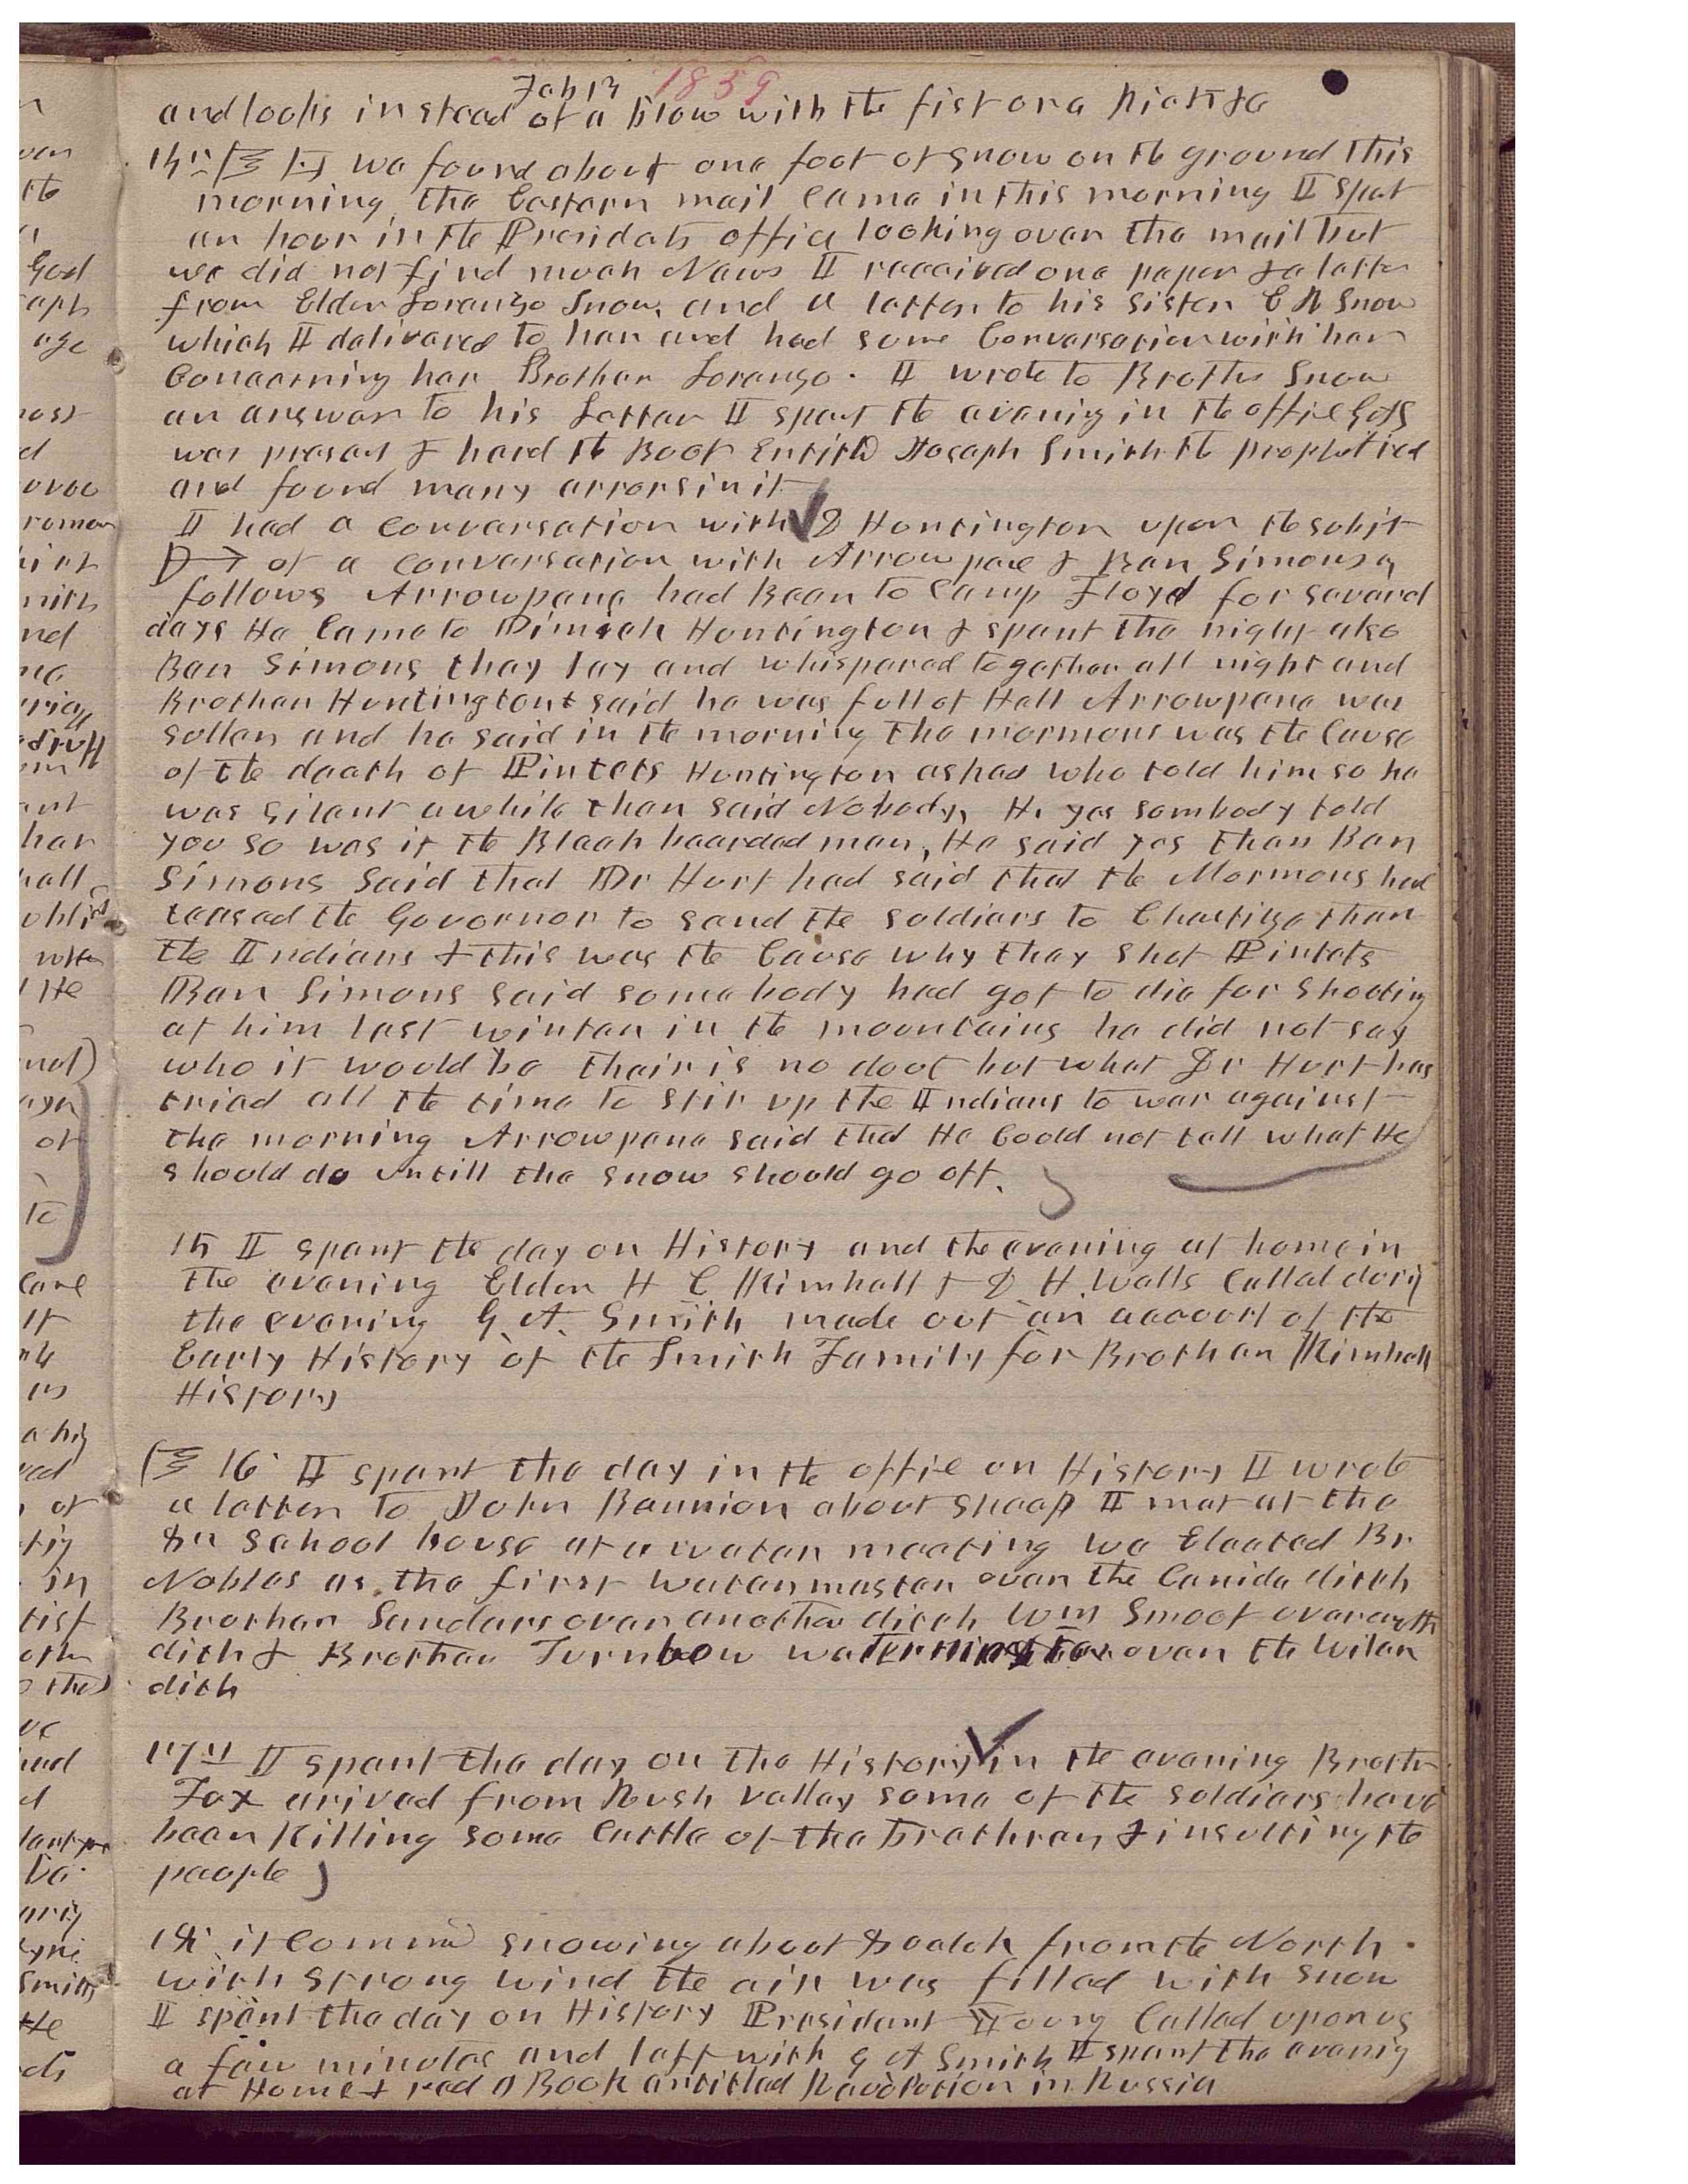 Feb 13 1859
and looks instead of a blow with the fist or a kick &c
we found about one foot of snow on the ground this
morning the Eastern mail came in this morning I spent
an hour in the Presidets office looking over the mail but
we did not find much News I received one paper & a letter
from Elder Lorenzo Snow, and a letter to his sister E R Snow
which I delivered to her and had some Conversation with her
Concerning her Brother Lorenzo. I wrote to Brother Snow
an answer to his Letter I spent the evenig in the office
was presat & hard the Book Entitld Joseph Smith the prophet red
and found many errors in it
I had a conversation with D Huntington upon the subjt
of a conversation with Arrowpine & Ben Simons as
follows Arrowpene had Been to Camp Floyd for several
days He Came to Dimick Huntington & spent the night also
Ben Simons they lay and whispered together all night and
Brother Huntington said he was full of Hell Arrowpene was
sullen and he said in the morning the mormons was the Cause
of the death of Pintets Huntington asked who told him so he
was silent awhile then said Nobody, H. yes sombody told
you so was it the Black bearded man, He said yes then Ben
Simons said that Dr Hurt had said that the Mormons had
teased the Governor to send the soldiers to Chastize them
the Indians & this was the Cause why they shot Pintets
Ben Simons said some body had got to die for shooting
at him last winter in the mountains he did not say
who it would be their is no dout but what Dr Hurt has
tried all the time to stir up the Indians to war against
the morning Arrowpene said that He Could not tell what He
should do untill the snow should go off.
15 I spent the day on History and the evening at home in
the evening Elder H C Kimball & D H. Wells Called durig
the evening G. A. Smith made out an account of the
Early History of the Smith Family for Brother Kimball
History
16 I spent the day in the office on History I wrote
a letter to John Bennion about sheep I met at the
school house at a water meeting we Elected Br.
Nobles as the first water master over the Canida ditch
Brother Sanders over another ditch Wm Smoot over anoth
ditch & Brother Turnbow water master over the
ditch
17th I spent the day on the History in the evening Brother
Fox arived from Rush valley some of the soldiers have
been killing some Cattle of the brethren & insulting the
people
18 it Commed snowing about 8 oclok from the North
with strong wind the air was filled with snow
I spent the day on History President Young Called upon us
a few minutes and left with G A Smith I spent the evenig
at Home & red A Book entitled Revolution in Russia